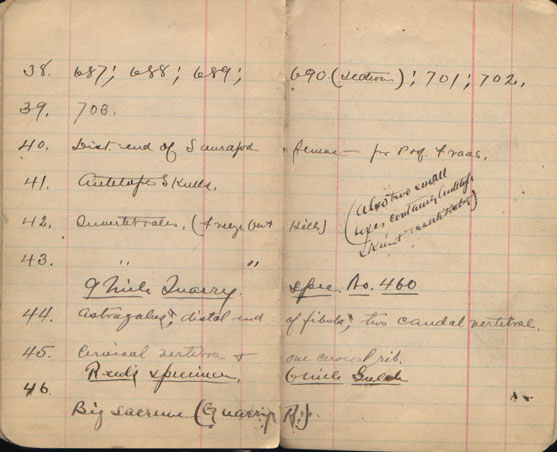 38. 687; 688; 689; 690 (section); 701; 702,
39. 703.
40. Dist. end of Sauropod femur — for Prof. Fraas.
41. Antelope Skulls. (Also two small
boxes containing Antelope
Skin & invertebrates)
42. Invertebrates, (Freeze Out Hills)
43. " "
9 Mile Quarry. spec. No. 460
44. Astragalus, distal end of fibula, two caudal vertebrae.
45. Cervical vertebra & one cervical rib.
Reeds specimen. Gulch
46.
Big sacrum (Quarry R.)